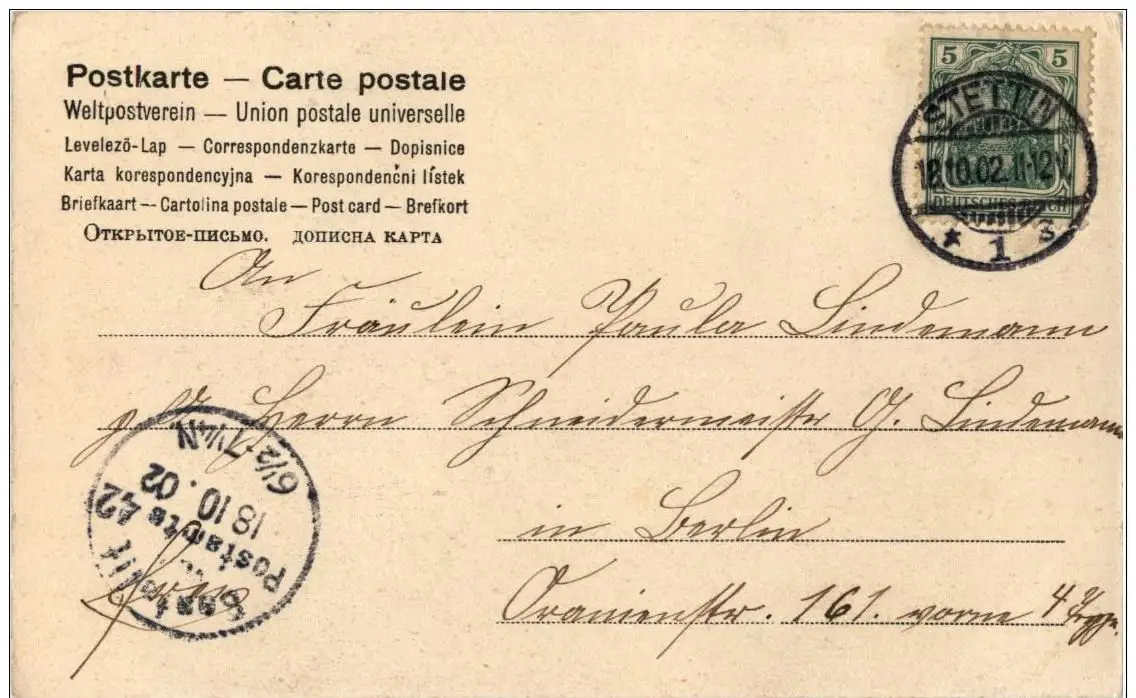 Postkarte — Carte postale
Weltpostverein — Union postale universelle
Levelezö-Lap — Correspondenzkarte — Dopisnice
Karta korespondencyjna — Korespondenčni lístek
Briefkaart — Cartolina postale — Post card — Brefkort
Открытое-письмо. дописна карта
5 5
STETTIN
18.10.02.11-12V.
DEUTSCHES REICH
* 1 s
An
Fräulein Paula Lindemann
Herrn Schneidermeistr G. Lindemann
in Berlin
Oranienstr. 161. vorne 4
6½-7¼N
18 10. 02
Postamte 42
Bestellt